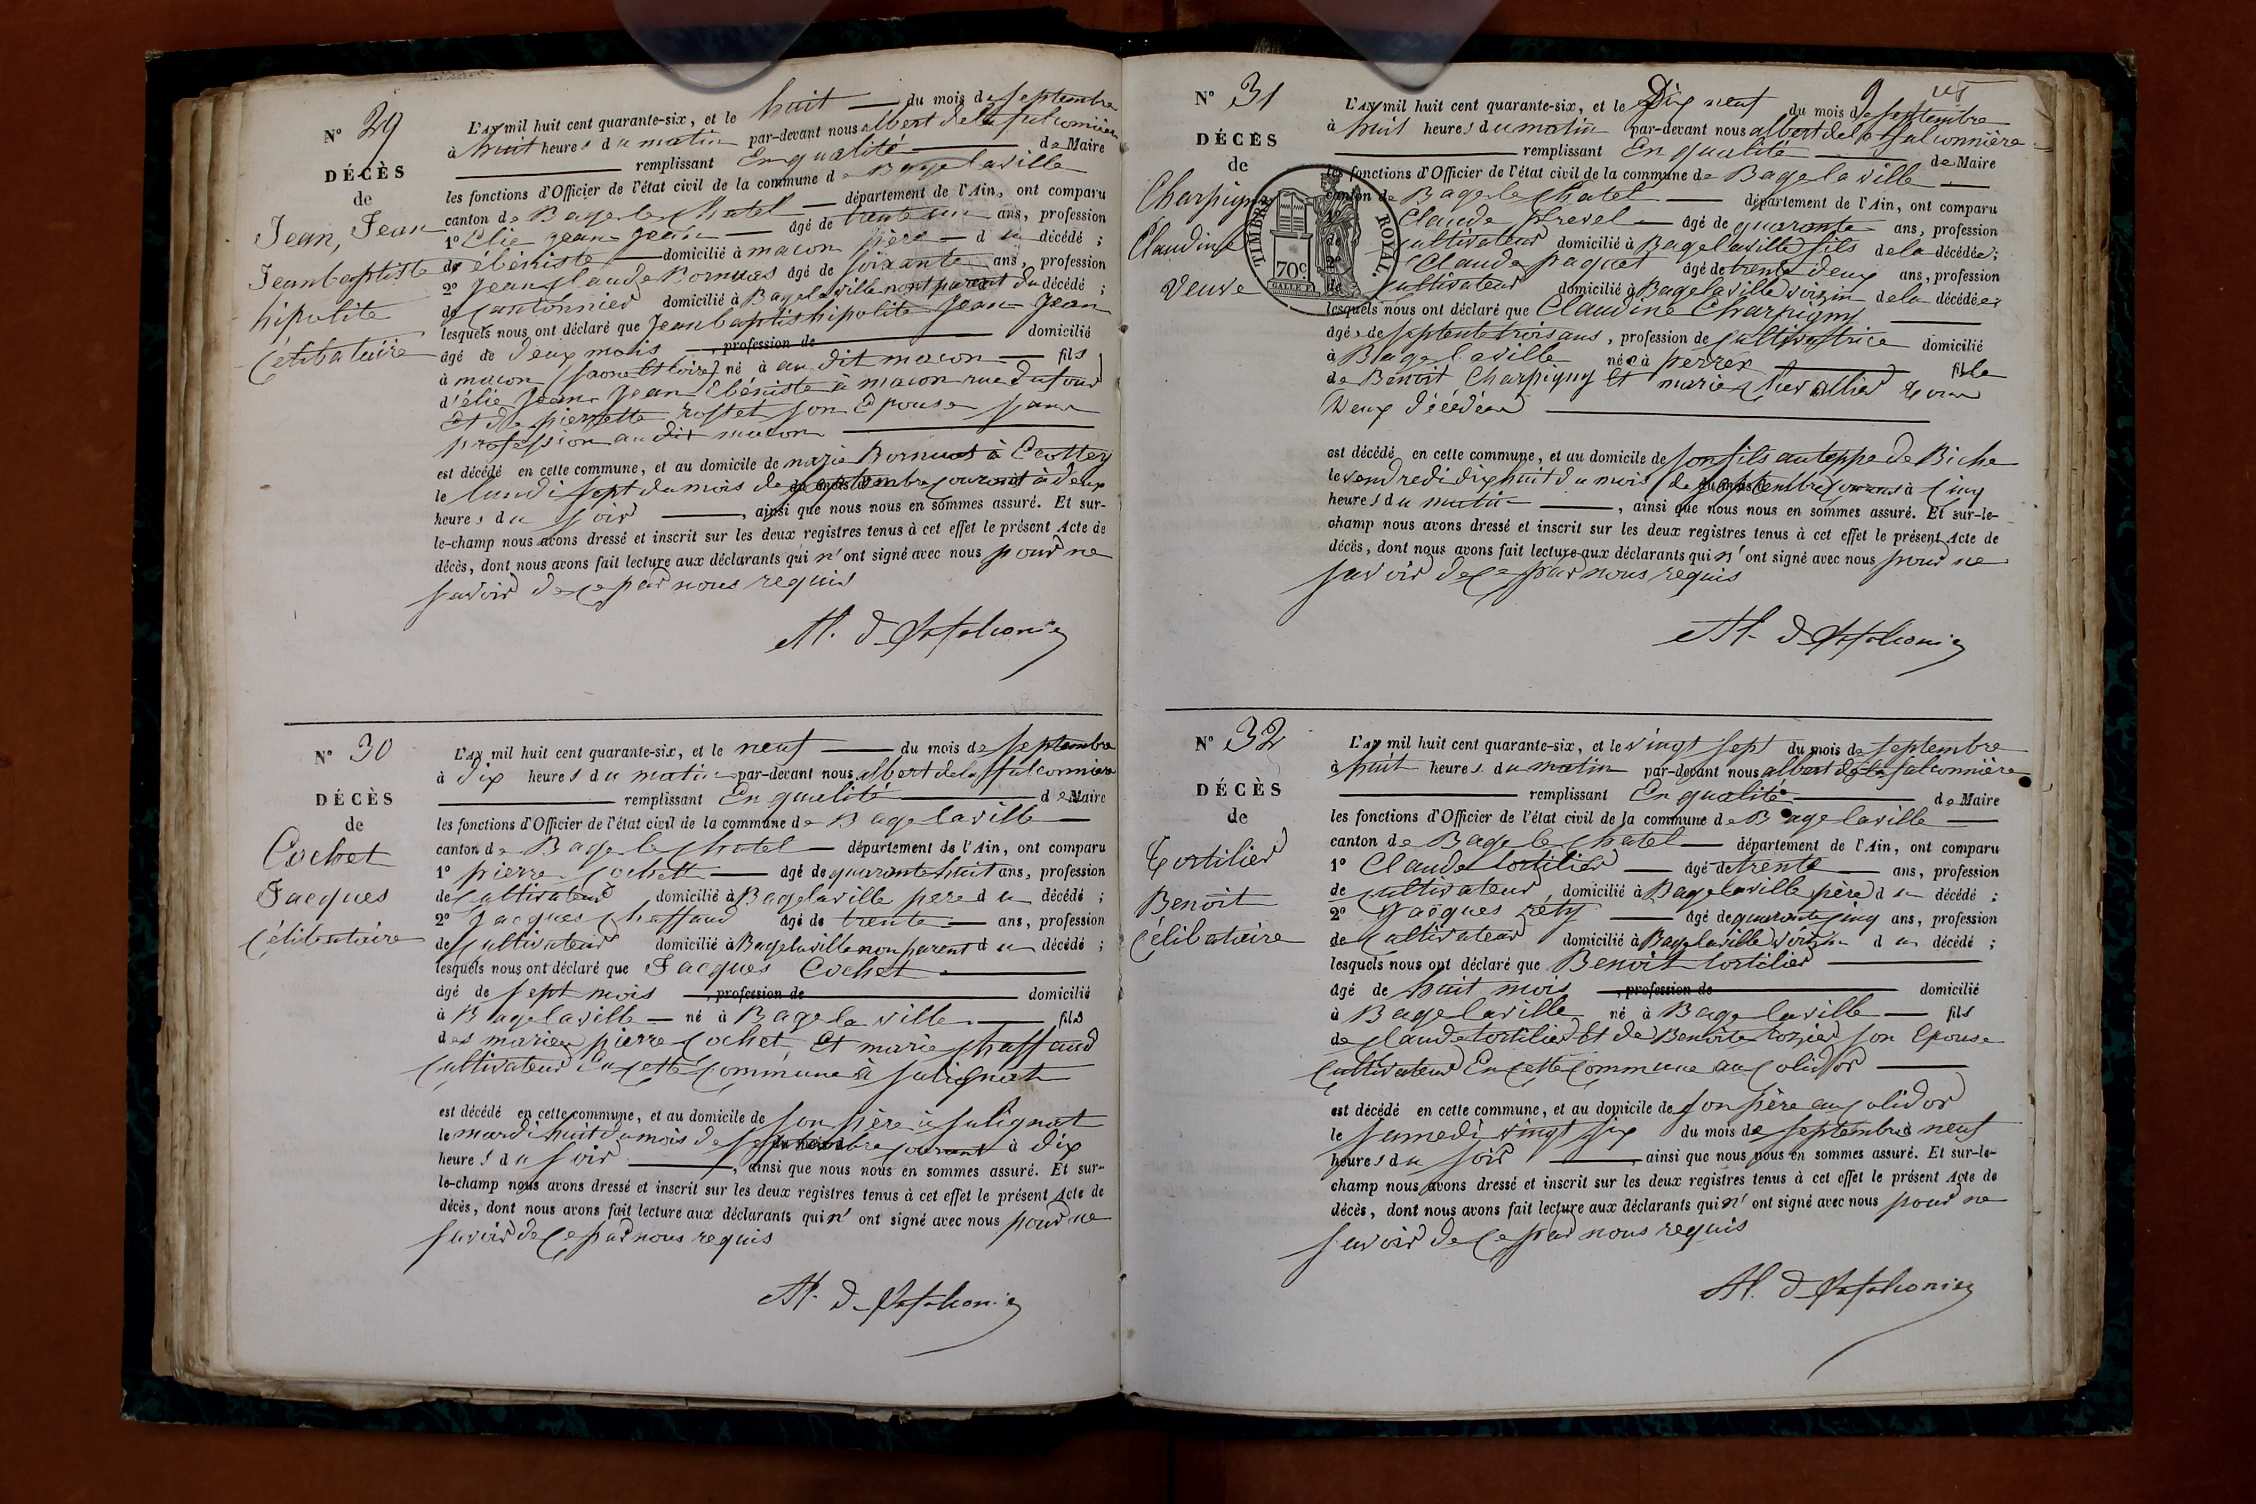 N° 29
DÉCÈS
de
Jean, Jean
Jeanbaptiste
hipolite
Célibataire
L'AN mil huit cent quarante-six, et le huit du mois de septembre
à huit heures du matin par-devant nous albert dela falconnière
remplissant En qualité de Maire
les fonctions d'Officier de l'état civil de la commune de Bagelaville
canton de Bagelechatel département de l'Ain, ont comparu
1° Elie jean jean âgé de trente un ans, profession
de ébéniste domicilié à macon père du décédé ;
2° jean claude Bornuas âgé de soixante ans, profession
de Cantonnier domicilié à Bagelaville non parent du décédé ;
lesquels nous ont déclaré que Jeanbaptis hipolite Jean Jean
âgé de deux mois , profession de domicilié
à macon (saone et loire) né à au dit macon fils
d'élie jean jean Ebéniste à macon rue dufour
Et de pierrette rostet son Epouse sans
profession au dit macon
est décédé en cette commune, et au domicile de marie Bornuas à
le lundi sept du mois de septembre courant à deux
heures du soir , ainsi que nous nous en sommes assuré. Et sur-
le-champ nous avons dressé et inscrit sur les deux registres tenus à cet effet le présent Acte de
décès, dont nous avons fait lecture aux déclarants qui n'ont signé avec nous pour ne
savoir de ce par nous requis
Al. d Lafalconie
N° 30
DÉCÈS
de
Cochet
Jacques
Célibataire
L'AN mil huit cent quarante-six, et le neuf du mois de septembre
à dix heures du matin par-devant nous albert dela falconnière
remplissant En qualité de Maire
les fonctions d'Officier de l'état civil de la commune de Bagelaville
canton de Bagelechatel département de l'Ain, ont comparu
1° pierre Cochet âgé de quarante huit ans, profession
de Cultivateur domicilié à Bagelaville pere du décédé ;
2° Jacques Chaffaud âgé de trente ans, profession
de Cultivateur domicilié à Bagelaville non parent du décédé ;
lesquels nous ont déclaré que Jacques Cochet
âgé de sept mois , profession de domicilié
à Bagelaville né à Bagelaville fils
des mariés pierre Cochet Et marie Chaffaud
Cultivateur En cette Commune à salignat
est décédé en cette commune, et au domicile de son père à salignat
le mardi huit du mois de septembre courant à dix
heures du soir , ainsi que nous nous en sommes assuré. Et sur-
le-champ nous avons dressé et inscrit sur les deux registres tenus à cet effet le présent Acte de
décès, dont nous avons fait lecture aux déclarants qui n'ont signé avec nous pour ne
savoir de ce par nous requis
Al. d Lafalconie
9
N° 31
DÉCÈS
de
Charpigny
Claudine
Veuve
TIMBRE ROYAL.
70c
L'AN mil huit cent quarante-six, et le Dix neuf du mois de septembre
à huit heures du matin par-devant nous albert dela falconnière
remplissant En qualité de Maire
les fonctions d'Officier de l'état civil de la commune de Bagelaville
canton de Bagelechatel département de l'Ain, ont comparu
1° Claude Prevel âgé de quarante ans, profession
de Cultivateur domicilié à Bagelaville fils dela décédée ;
2° Claude paquet âgé de trente deux ans, profession
de Cultivateur domicilié à Bagelaville voisin dela décédée ;
lesquels nous ont déclaré que Claudine Charpigny
âgée de septente trois ans , profession de Cultivatrice domicilié
à Bagelaville née à perrex fille
de Benoit Charpigny Et marie Chevallier tous
Deux Décédés
est décédé en cette commune, et au domicile de son fils au teppe de Biche
le vendredi dixhuit du mois de septembre courant à Cinq
heures du matin , ainsi que nous nous en sommes assuré. Et sur-le-
champ nous avons dressé et inscrit sur les deux registres tenus à cet effet le présent Acte de
décès, dont nous avons fait lecture aux déclarants qui n'ont signé avec nous pour ne
savoir de ce par nous requis
Al. d Lafalconie
N° 32
DÉCÈS
de
Tortilier
Benoit
Célibataire
L'AN mil huit cent quarante-six, et le vingt sept du mois de septembre
à huit heures du matin par-devant nous albert dela falconnière
remplissant En qualité de Maire
les fonctions d'Officier de l'état civil de la commune de Bagelaville
canton de Bagelechatel département de l'Ain, ont comparu
1° Claude tortilier âgé de trente ans, profession
de Cultivateur domicilié à Bagelaville père du décédé ;
2° Jacques Réty âgé de quarante cinq ans, profession
de Cultivateur domicilié à Bagelaville voisin du décédé ;
lesquels nous ont déclaré que Benoit tortilier
âgé de huit mois , profession de domicilié
à Bagelaville né à Bagelaville fils
de claude tortilier Et de Benoite son Epouse
Cultivateur En cette Commune au Colidor
est décédé en cette commune, et au domicile de son père au Colidor
le samedi vingt six du mois de septembre à neuf
heures du soir , ainsi que nous nous en sommes assuré. Et sur-le-
champ nous avons dressé et inscrit sur les deux registres tenus à cet effet le présent Acte de
décès, dont nous avons fait lecture aux déclarants qui n'ont signé avec nous pour ne
savoir de ce par nous requis
Al. d Lafalconie